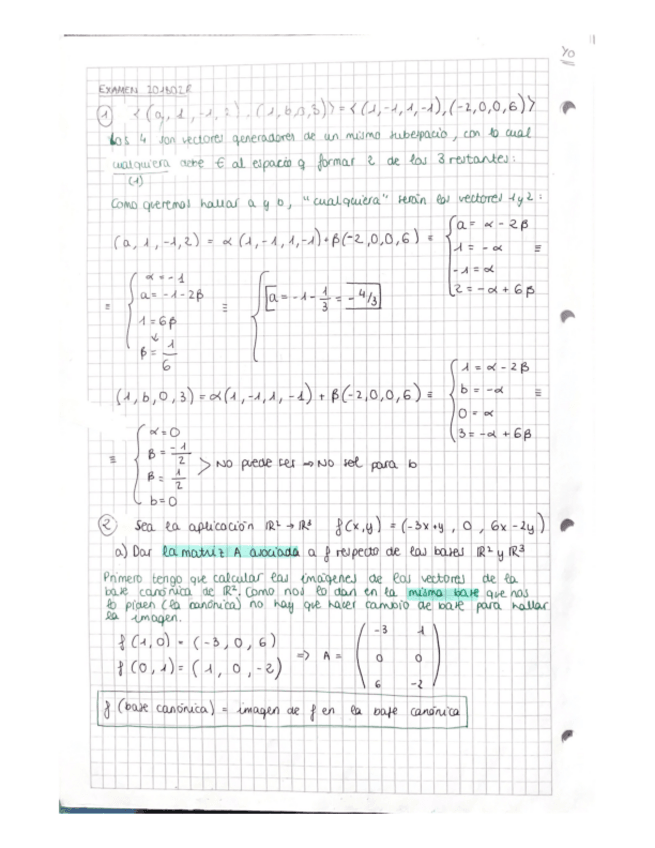 YO
EXAMEN 201802R
① <(a, 1, -1, 2), (1, b, 0, 3)> = <(1, -1, 1, -1), (-2, 0, 0, 6)>
Los 4 son vectores generadores de un mismo subespacio, con lo cual
cualquiera debe ∈ al espacio q forman 2 de los 3 restantes:
(1)
Como queremos hallar a y b, "cualquiera" serán los vectores 1 y 2:
(a, 1, -1, 2) = α (1, -1, 1, -1) + β(-2, 0, 0, 6) ≡
a = α - 2β
1 = -α
-1 = α
2 = -α + 6β
≡
≡
α = -1
a = -1 - 2β
1 = 6β
↓
β = 1/6
≡
a = -1 - 1/3 = -4/3
(1, b, 0, 3) = α(1, -1, 1, -1) + β(-2, 0, 0, 6) ≡
1 = α - 2β
b = -α
0 = α
3 = -α + 6β
≡
≡
α = 0
β = -1/2
β = 1/2
b = 0
> No puede ser ⇒ No sol para b
② Sea la aplicación ℝ² → ℝ³ f(x,y) = (-3x+y, 0, 6x-2y)
a) Dar la matriz A asociada a f respecto de las bases ℝ² y ℝ³
Primero tengo que calcular las imágenes de los vectores de la
base canónica de ℝ². Como nos lo dan en la misma base que nos
lo piden (la canónica) no hay que hacer cambio de base para hallar
la imagen.
f(1,0) = (-3, 0, 6)
f(0,1) = (1, 0, -2)
⇒ A =
-3 1
0 0
6 -2
f (base canónica) = imagen de f en la base canónica